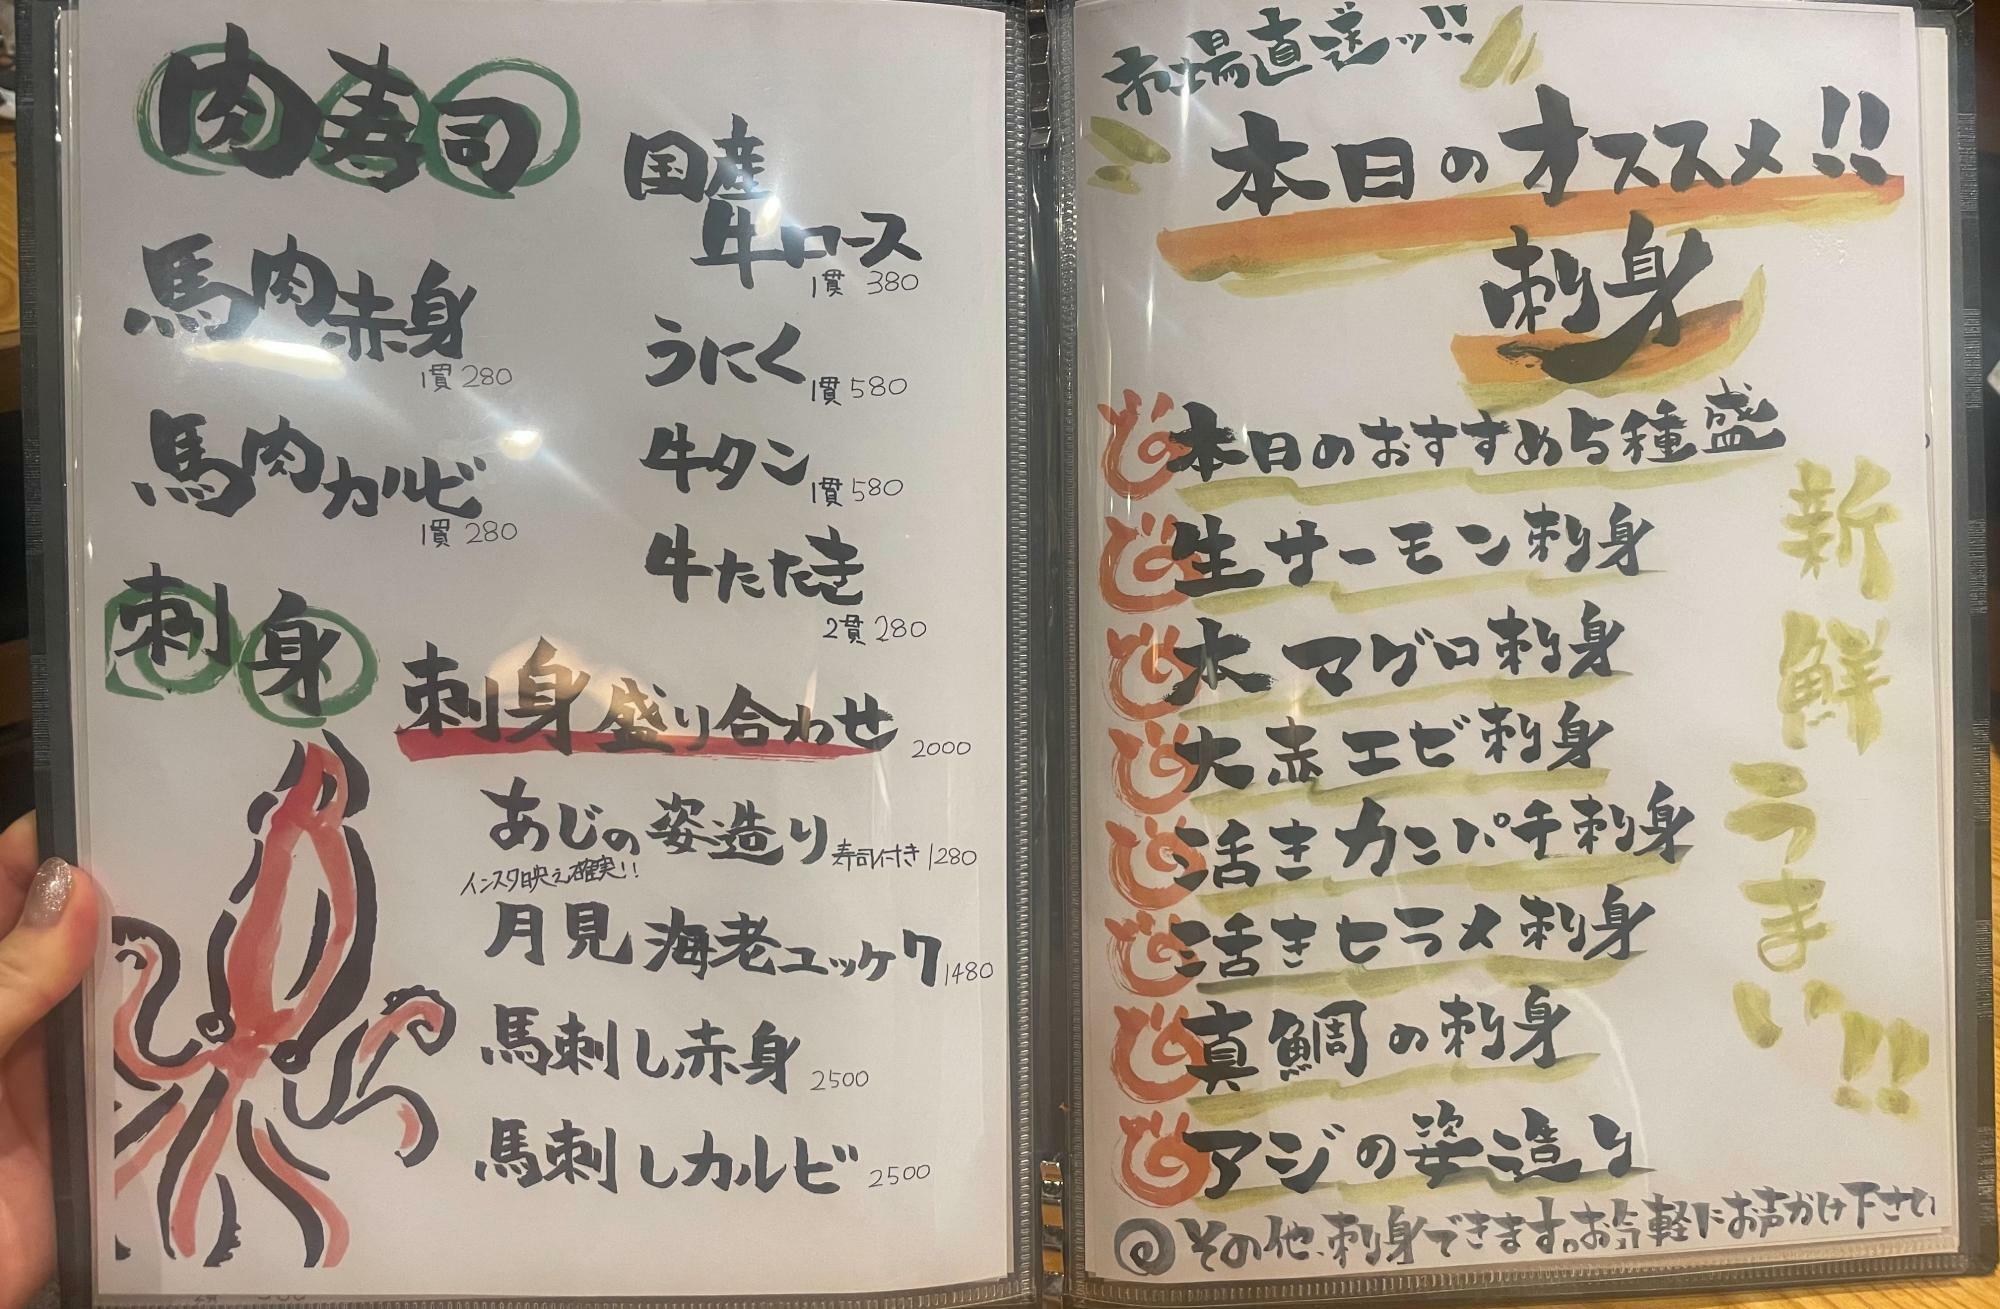 肉寿司
馬肉赤身
1貫 280
馬肉カルビ
1貫 280
国産
牛ロース
1貫 380
うにく
1貫 580
牛タン
1貫 580
牛たたき
2貫 280
刺身
刺身盛り合わせ 2000
あじの姿造り 寿司付き 1280
インスタ映え確実!!
月見海老ユッケ 1480
馬刺し赤身 2500
馬刺しカルビ 2500
市場直送ッ!!
本日のオススメ!!
刺身
本日のおすすめ5種盛
生サーモン刺身
本マグロ刺身
大赤エビ刺身
活きカンパチ刺身
活きヒラメ刺身
真鯛の刺身
アジの姿造り
新鮮うまい!!
その他、刺身できます。お気軽にお声かけ下さい